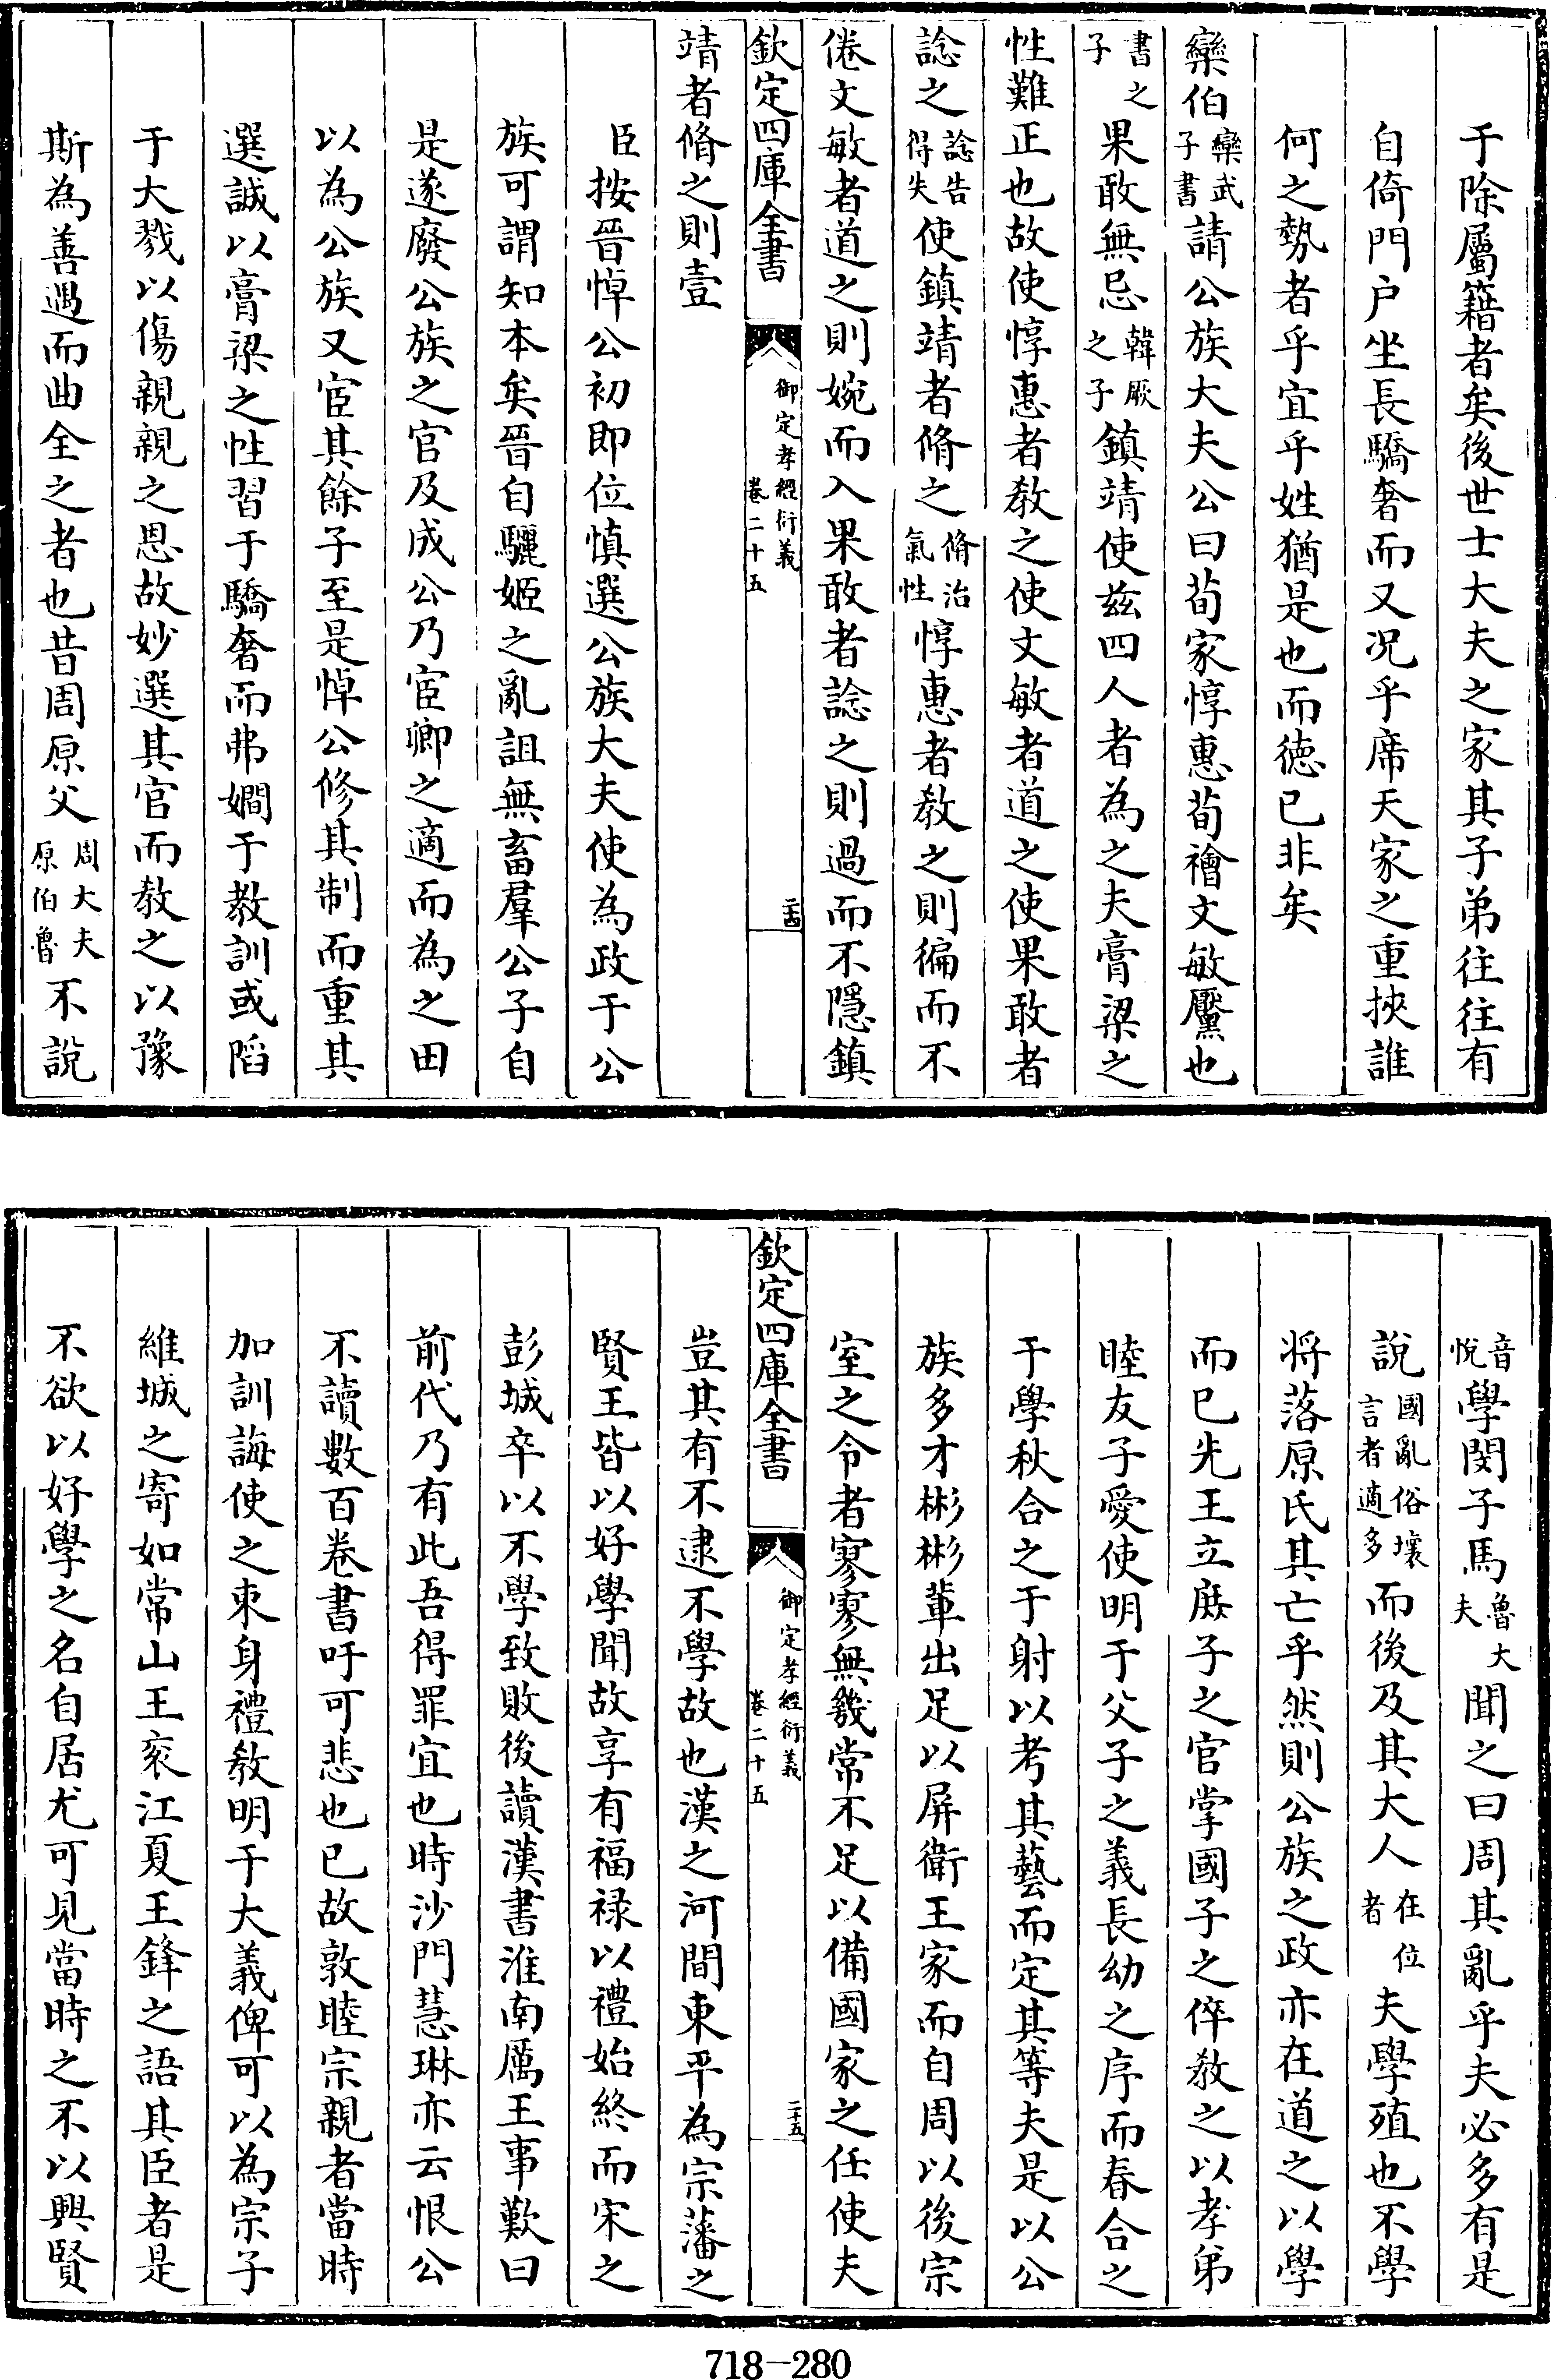 于除屬籍者矣後世士大夫之家其子弟往往有
自倚門户坐長驕奢而又况乎席天家之重挾誰
何之勢者乎宜乎姓猶是也而徳已非矣
欒伯欒武子書請公族大夫公曰荀家惇惠荀禬文敏黶也
書之子果敢無忌韓厥之子鎮靖使兹四人者為之夫膏粱之
性難正也故使惇惠者教之使文敏者道之使果敢者
諗之諗告得失使鎮靖者脩之脩治氣性惇惠者教之則徧而不
倦文敏者道之則婉而入果敢者諗之則過而不隱鎮
欽定四庫全書
御定孝經衍義
卷二十五
二十四
靖者脩之則壹
臣按晉悼公初即位慎選公族大夫使為政于公
族可謂知本矣晉自驪姬之亂詛無畜羣公子自
是遂廢公族之官及成公乃宦卿之適而為之田
以為公族又宦其餘子至是悼公修其制而重其
選誠以膏粱之性習于驕奢而弗嫺于教訓或䧟
于大戮以傷親親之恩故妙選其官而教之以豫
斯為善遇而曲全之者也昔周原父周大夫原伯魯不說
音悅學閔子馬魯大夫聞之曰周其亂乎夫必多有是
說國亂俗壞言者適多而後及其大人在位者夫學殖也不學
將落原氏其亡乎然則公族之政亦在道之以學
而已先王立庶子之官掌國子之倅教之以孝弟
睦友子愛使明于父子之義長幼之序而春合之
于學秋合之于射以考其藝而定其等夫是以公
族多才彬彬輩出足以屏衛王家而自周以後宗
室之令者寥寥無幾常不足以備國家之任使夫
欽定四庫全書
御定孝經衍義
卷二十五
二十五
豈其有不逮不學故也漢之河間東平為宗藩之
賢王皆以好學聞故享有福禄以禮始終而宋之
彭城卒以不學致敗後讀漢書淮南厲王事歎曰
前代乃有此吾得罪宜也時沙門慧琳亦云恨公
不讀數百卷書吁可悲也已故敦睦宗親者當時
加訓誨使之束身禮教明于大義俾可以為宗子
維城之寄如常山王衮江夏王鋒之語其臣者是
不欲以好學之名自居尤可見當時之不以興賢
718-280